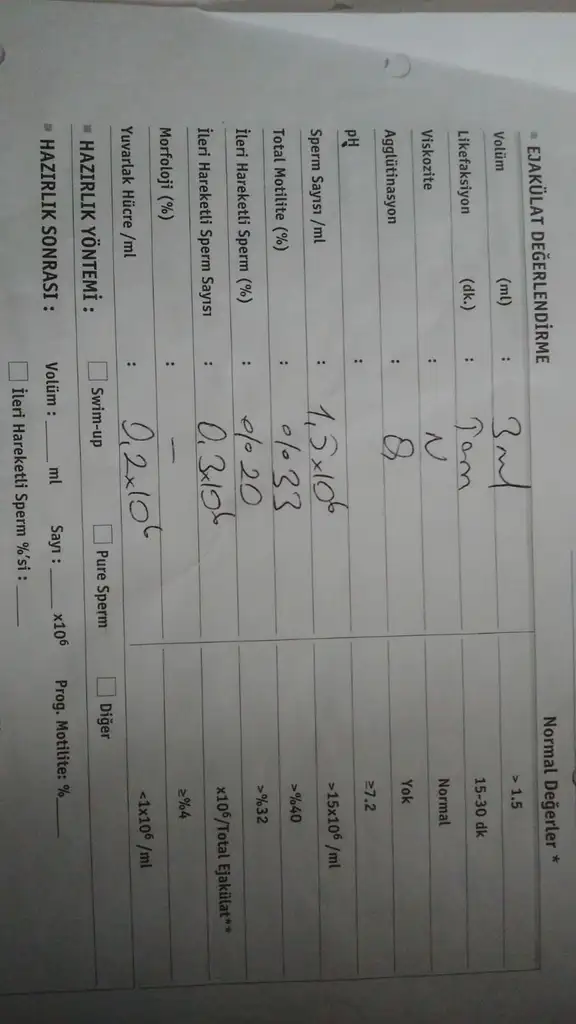 EJAKÜLAT DEĞERLENDİRME Normal Değerler *
Volüm (ml) : 3 ml > 1.5
Likefaksiyon (dk.) : Tam 15-30 dk
Viskozite : N Normal
Agglütinasyon : Yok
pH : ≥7.2
Sperm Sayısı /ml : 1,5x10⁶ >15x10⁶ /ml
Total Motilite (%) : %33 >%40
İleri Hareketli Sperm (%) : %20 >%32
İleri Hareketli Sperm Sayısı : 0,3x10⁶ x10⁶/Total Ejakülat**
Morfoloji (%) : — ≥%4
Yuvarlak Hücre /ml : 0,2x10⁶ <1x10⁶ /ml
HAZIRLIK YÖNTEMİ : Swim-up Pure Sperm Diğer
HAZIRLIK SONRASI : Volüm : ___ ml Sayı : ___ x10⁶ Prog. Motilite: %___
İleri Hareketli Sperm %'si : ___